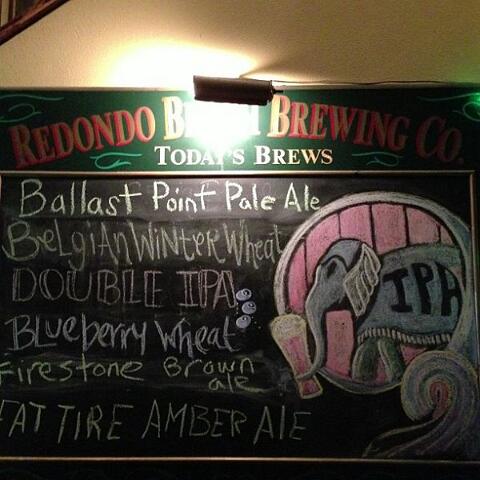 REDONDO BEACH BREWING CO.
TODAY'S BREWS
Ballast Point Pale Ale
BeLgiAn WiNterWheat
DOUBLE IPA
BLueberry Wheat
Firestone Brown
ale
FAT TIRE AMBER ALE
IPA